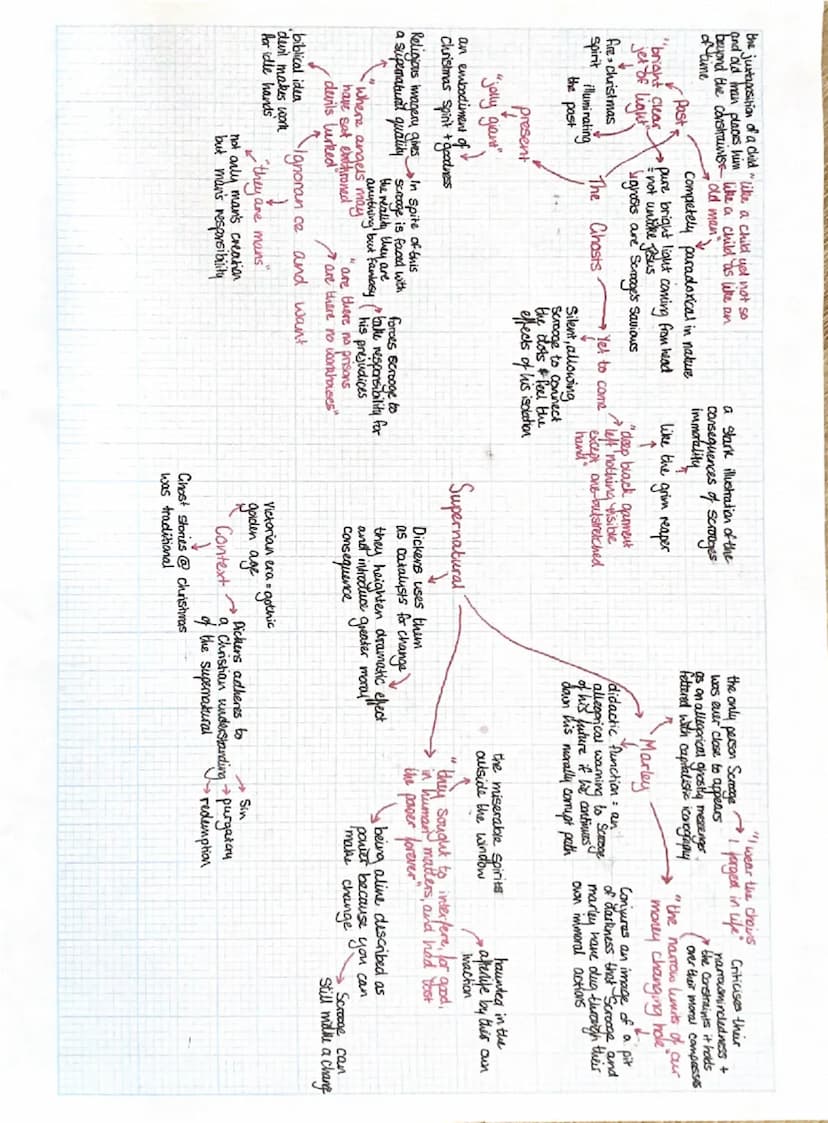 Supernatural
Dickens uses them
as catalysts for change
they heighten dramatic effect
and introduce greater moral
consequence
The Ghosts
Past
"like a child yet not so
like a child as like an
old man"
the juxtaposition of a child
and old man places him
beyond the constraints
of time
completely paradoxical in nature
"bright clear
jet of light"
pure bright light coming from head
= not unlike Jesus
ghosts are Scrooge's saviours
fire = christmas
spirit
illuminating
the past
present
"jolly giant"
an embodiment of
Christmas spirit + goodness
Yet to come
Silent, allowing
scrooge to connect
the dots & feel the
effects of his isolation
"deep black garment
left nothing visible
except one outstretched
hand"
like the grim reaper
a stark illustration of the
consequences of Scrooges
immorality
Ignorance and want
"where angels may
have sat enthroned
devils lurked"
Religious imagery gives
a supernatural quality
In spite of this
scrooge is faced with
the reality they are
anything but fantasy
biblical idea
"devil makes work
for idle hands"
"they are mans"
not only man's creation
but man's responsibility
"are there no prisons
are there no workhouses"
forces scrooge to
take responsibility for
his prejudices
Marley
the only person Scrooge
was ever close to appears
as an allegorical ghostly messenger
fettered with capitalistic iconography
"I wear the chains
I forged in life"
didactic function = an
allegorical warning to Scrooge
of his future if he continues
down his morally corrupt path
"the narrow limits of our
money changing hole"
Criticises their
narrowmindedness +
the constraints it holds
over their moral compasses
Conjures an image of a pit
of darkness that Scrooge and
marley have dug through their
own immoral actions
"they sought to interfere, for good,
in human matters, and had lost
the power forever"
the miserable spirits
outside the window
haunted in the
afterlife by their own
inaction
being alive described as
power because you can
make change
Scrooge can
still make a change
Context
Victorian era = gothic
golden age
Ghost stories @ christmas
was traditional
Dickens adheres to
a Christian understanding
of the supernatural
Sin
purgatory
redemption